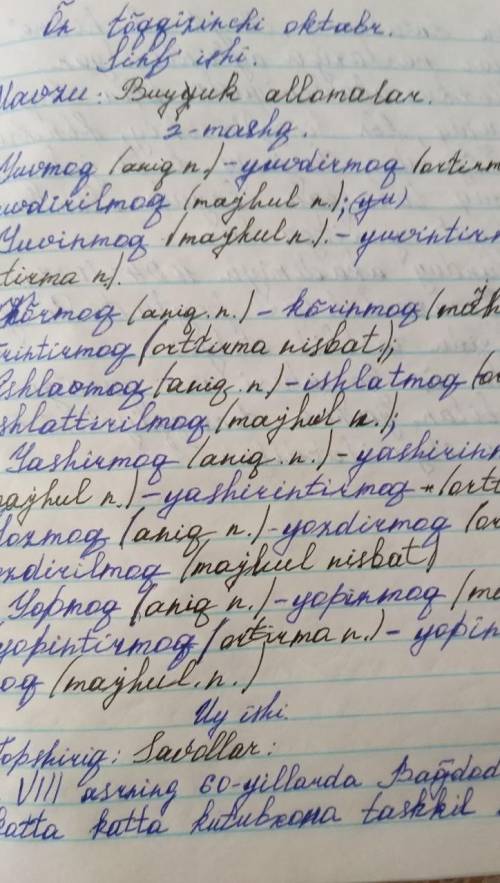 Õn tõqqizinchi oktabr.
Sinf ishi.
Mavzu: Buyuk allomalar.
2-mashq.
Yuvmoq (aniq n.) - yuvdirmoq (ortirm
uvdirilmoq (majhul n.); (yu)
Yuvinmoq (majhul n.). - yuvintirm
tirma n).
Kõrmoq (aniq. n.) - kõrinmoq (majh
rintirmoq (orttirma nisbat);
Ishlamoq (aniq. n) - ishlatmoq (or
shlattirilmoq (majhul n.);
Yashirmoq (aniq. n.) - yashirinm
majhul n.) - yashirintirmoq - (ortt
Yozmoq (aniq n.) - yozdirmoq (or
ozdirilmoq (majhul nisbat)
Yopmoq (aniq n.) - yopinmoq (ma
yopintirmoq (ortirma n.) - yopin
oq (majhul. n.)
Uy ishi.
Topshiriq: Savollar:
VIII asrning 60-yillarda Bağdod
katta katta kutubxona tashkil